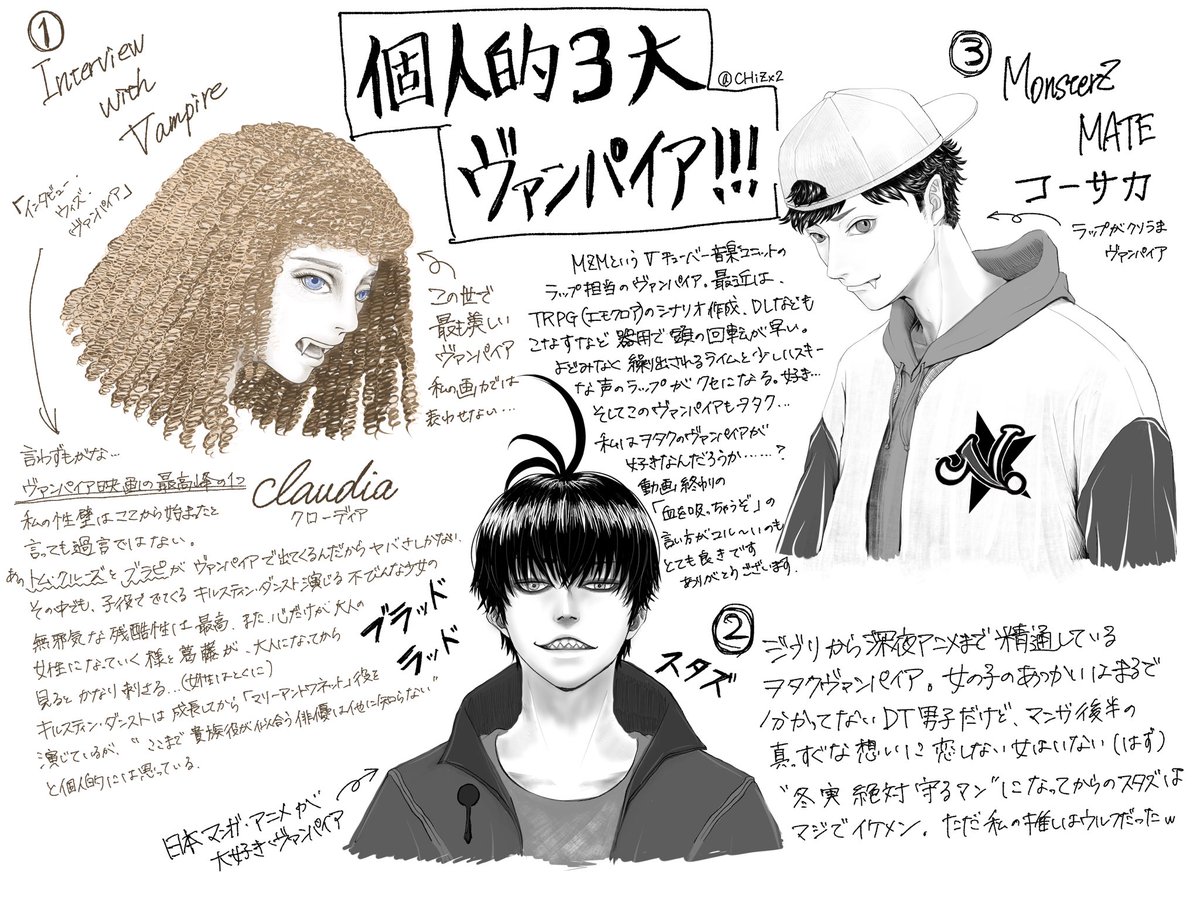 個人的3大
ヴァンパイア!!!
@CHiZx2
①
Interview
with
Vampire
「インタビュー・
ウィズ・
ヴァンパイア」
この世で
最も美しい
ヴァンパイア
私の画力では
表わせない…
言わずもがな…
ヴァンパイア映画の最高峰の1つ
私の性壁はここから始まったと
言っても過言ではない。
あのトム・クルーズとブラピがヴァンパイアで出てくるんだからヤバさしかない。
その中でも、子役ででてくるキルスティン・ダンスト演じる不びんな少女の
無邪気な残酷性は最高、また、心だけが大人の
女性になっていく様と葛藤が、大人になってから
見るとかなり刺さる…(女性はとくに)
キルスティン・ダンストは成長してから「マリーアントワネット」役を
演じているが、"ここまで貴族役が似合う俳優は他に知らない"
と個人的には思っている。
Claudia
クローディア
③
MonsterZ
MATE
コーサカ
ラップがクソうま
ヴァンパイア
MZMというVチューバー音楽ユニットの
ラップ担当のヴァンパイア。最近は、
TRPG(エモクロア)のシナリオ作成、DLなども
こなすなど器用で頭の回転が早い。
よどみなく繰り出されるライムと少しハスキー
な声のラップがクセになる。好き…
そしてこのヴァンパイアもヲタク…
私はヲタクのヴァンパイアが
好きなんだろうか……?
動画終わりの
「血を吸っちゃうぞ」の
言い方がコルハいいのも
とても良きです
ありがとうございます.
ブラッド
ラッド
スタズ
日本マンガ・アニメが
大好きヴァンパイア
②
ジブリから深夜アニメまで精通している
ヲタクヴァンパイア。女の子のあつかいはまるで
分かってないDT男子だけど、マンガ後半の
真っすぐな想いに恋しない女はいない(はず)
"冬実絶対守るマン"になってからのスタズは
マジでイケメン。ただ私の推しはウルフだったw